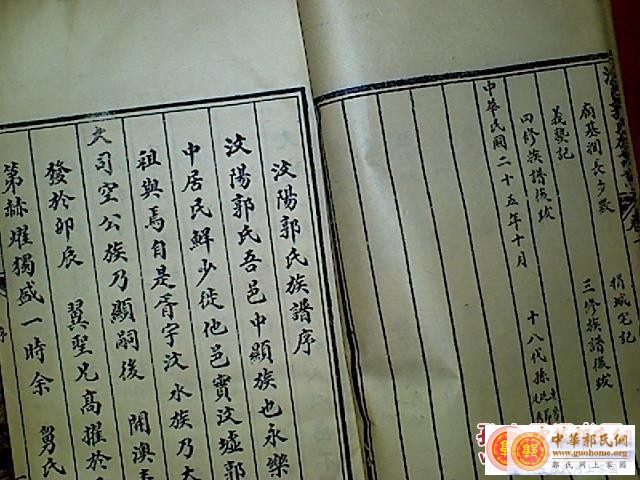 廟基濶長多數
捐城宅記
義塾記
三修族譜後跋
四修族譜後跋
中華民國二十五年十月
十八代孫
汶陽郭氏族譜序
汶陽郭氏吾邑中顯族也永樂
中居民鮮少徙他邑實汶墟郭
祖與焉自是胥宇汶水族乃大
司空公族乃顯嗣後 開澳
發於卯辰 翼聖兄高擢於
第赫燿獨盛一時余 舅氏
序
中華郭氏網
www.guohome.org
郭氏网上家园